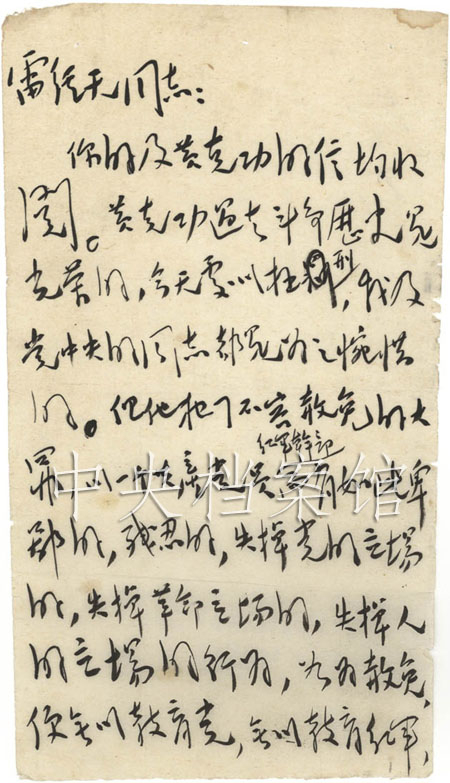 雷经天同志：
你的及黄克功的信均收
阅。黄克功过去斗争历史是
光荣的，今天处以极刑，我及
党中央的同志都是为之惋惜
的。但他犯了不容赦免的大
红军幹部
罪，以一个共产党员而有如此卑
鄙的，残忍的，失掉党的立場
的，失掉革命立场的，失掉人
的立場的行为，如为赦免，
便无以教育党，无以教育红军，
中央档案馆